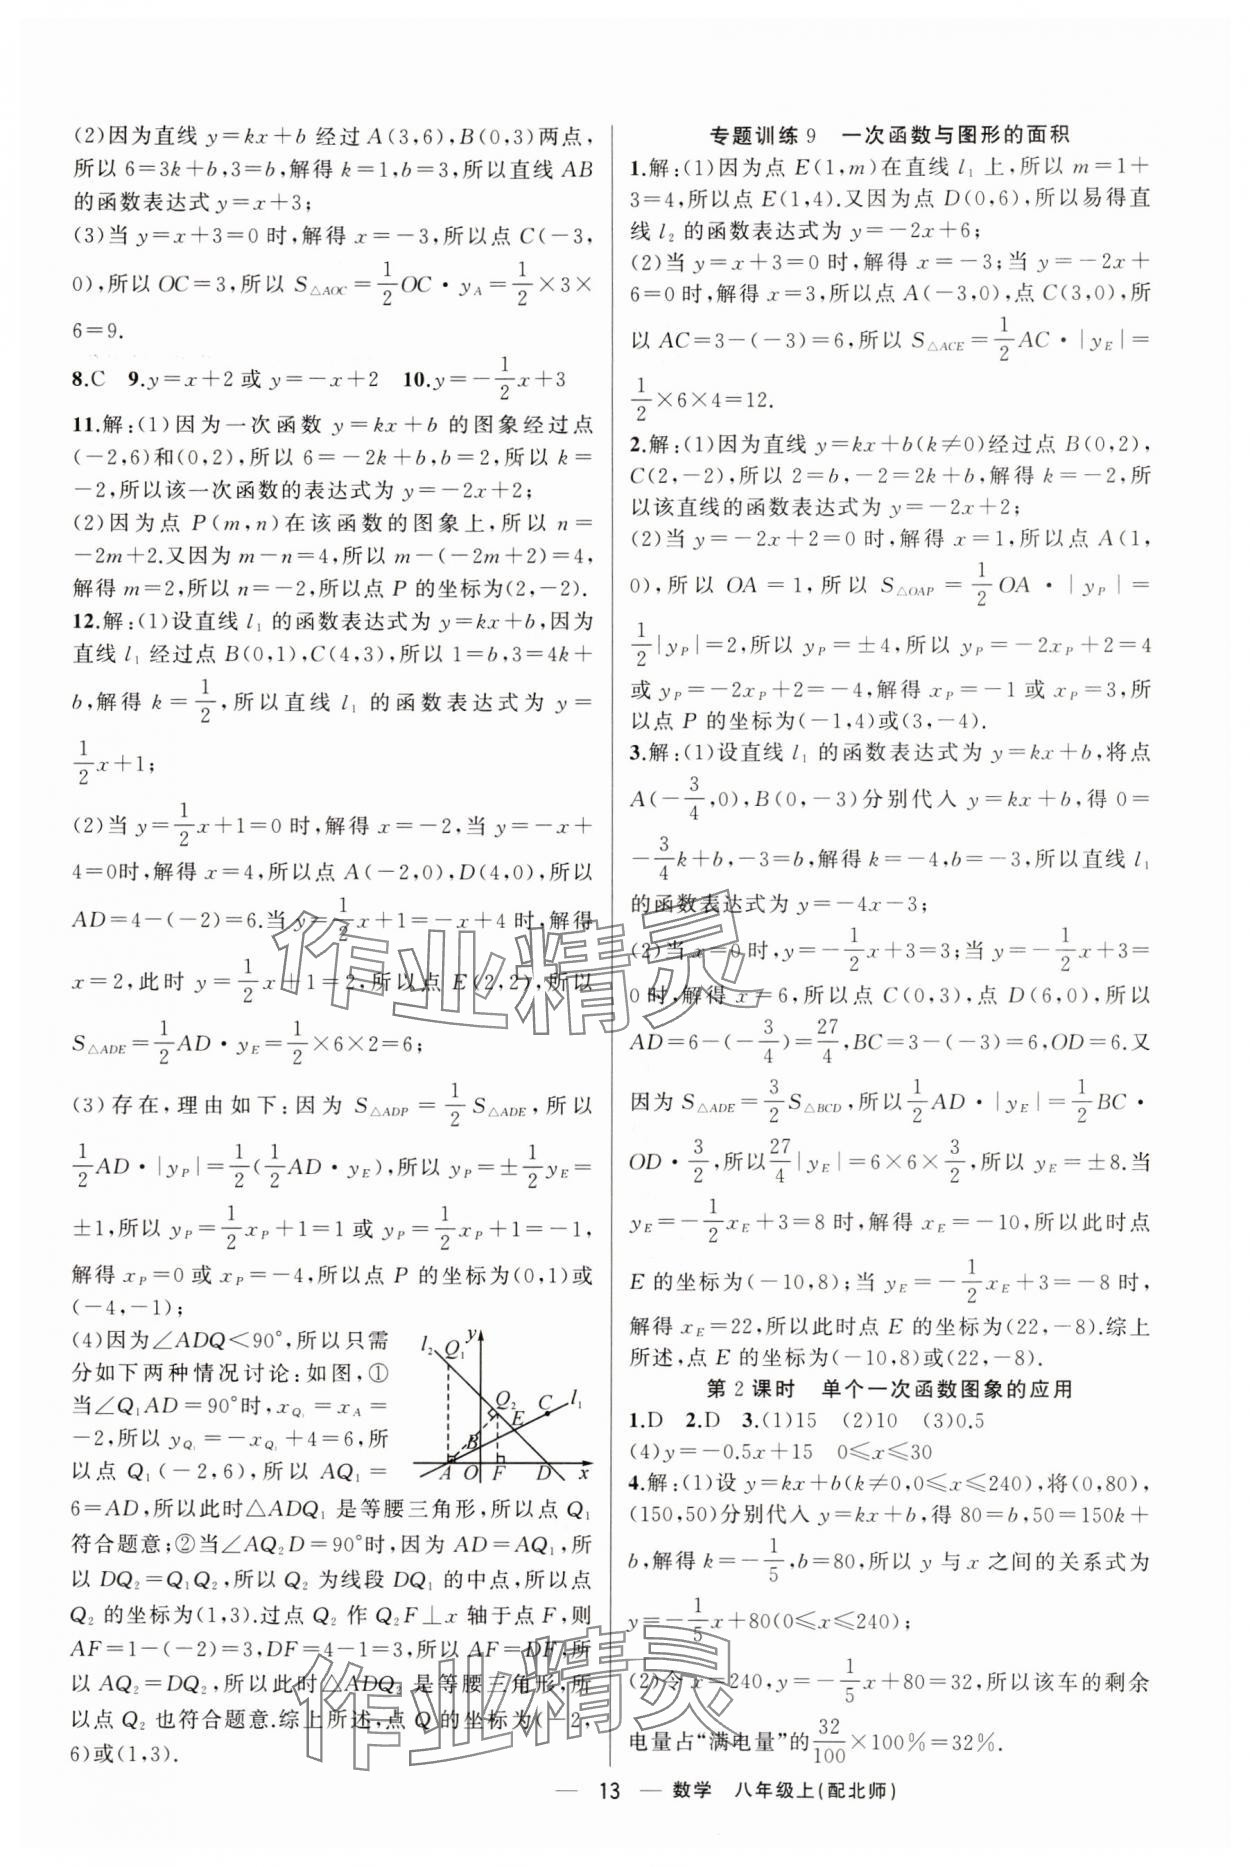 (2)因为直线 y=kx+b 经过 A(3,6),B(0,3)两点,
所以 6=3k+b,3=b,解得 k=1,b=3,所以直线 AB
的函数表达式 y=x+3;
(3)当 y=x+3=0 时,解得 x=-3,所以点 C(-3,
0),所以 OC=3,所以 S△AOC=1/2 OC·y_A=1/2×3×
6=9.
8.C 9.y=x+2 或 y=-x+2 10.y=-1/2 x+3
11.解:(1)因为一次函数 y=kx+b 的图象经过点
(-2,6)和(0,2),所以 6=-2k+b,b=2,所以 k=
-2,所以该一次函数的表达式为 y=-2x+2;
(2)因为点 P(m,n)在该函数的图象上,所以 n=
-2m+2.又因为 m-n=4,所以 m-(-2m+2)=4,
解得 m=2,所以 n=-2,所以点 P 的坐标为(2,-2).
12.解:(1)设直线 l₁ 的函数表达式为 y=kx+b,因为
直线 l₁ 经过点 B(0,1),C(4,3),所以 1=b,3=4k+
b,解得 k=1/2,所以直线 l₁ 的函数表达式为 y=
1/2 x+1;
(2)当 y=1/2 x+1=0 时,解得 x=-2,当 y=-x+
4=0时,解得 x=4,所以点 A(-2,0),D(4,0),所以
AD=4-(-2)=6.当 y=1/2 x+1=-x+4 时,解得
x=2,此时 y=1/2 x+1=2,所以点 E(2,2),所以
S△ADE=1/2 AD·y_E=1/2×6×2=6;
(3)存在,理由如下:因为 S△ADP=1/2 S△ADE,所以
1/2 AD·|y_P|=1/2(1/2 AD·y_E),所以 y_P=±1/2 y_E=
±1,所以 y_P=1/2 x_P+1=1 或 y_P=1/2 x_P+1=-1,
解得 x_P=0 或 x_P=-4,所以点 P 的坐标为(0,1)或
(-4,-1);
(4)因为∠ADQ<90°,所以只需
分如下两种情况讨论:如图,①
当∠Q₁AD=90°时,x_Q₁=x_A=
-2,所以 y_Q₁=-x_Q₁+4=6,所
以点 Q₁(-2,6),所以 AQ₁=
l₂ Q₁ y
Q₂ C l₁
E
B
A O F D x
6=AD,所以此时△ADQ₁ 是等腰三角形,所以点 Q₁
符合题意;②当∠AQ₂D=90°时,因为 AD=AQ₁,所
以 DQ₂=Q₁Q₂,所以 Q₂ 为线段 DQ₁ 的中点,所以点
Q₂ 的坐标为(1,3).过点 Q₂ 作 Q₂F⊥x 轴于点 F,则
AF=1-(-2)=3,DF=4-1=3,所以 AF=DF,所
以 AQ₂=DQ₂,所以此时△ADQ₂ 是等腰三角形,所
以点 Q₂ 也符合题意.综上所述,点 Q 的坐标为(-2,
6)或(1,3).
专题训练 9 一次函数与图形的面积
1.解:(1)因为点 E(1,m)在直线 l₁ 上,所以 m=1+
3=4,所以点 E(1,4).又因为点 D(0,6),所以易得直
线 l₂ 的函数表达式为 y=-2x+6;
(2)当 y=x+3=0 时,解得 x=-3;当 y=-2x+
6=0时,解得 x=3,所以点 A(-3,0),点 C(3,0),所
以 AC=3-(-3)=6,所以 S△ACE=1/2 AC·|y_E|=
1/2×6×4=12.
2.解:(1)因为直线 y=kx+b(k≠0)经过点 B(0,2),
C(2,-2),所以 2=b,-2=2k+b,解得 k=-2,所
以该直线的函数表达式为 y=-2x+2;
(2)当 y=-2x+2=0 时,解得 x=1,所以点 A(1,
0),所以 OA=1,所以 S△OAP=1/2 OA·|y_P|=
1/2|y_P|=2,所以 y_P=±4,所以 y_P=-2x_P+2=4
或 y_P=-2x_P+2=-4,解得 x_P=-1 或 x_P=3,所
以点 P 的坐标为(-1,4)或(3,-4).
3.解:(1)设直线 l₁ 的函数表达式为 y=kx+b,将点
A(-3/4,0),B(0,-3)分别代入 y=kx+b,得 0=
-3/4 k+b,-3=b,解得 k=-4,b=-3,所以直线 l₁
的函数表达式为 y=-4x-3;
(2)当 x=0 时,y=-1/2 x+3=3;当 y=-1/2 x+3=
0时,解得 x=6,所以点 C(0,3),点 D(6,0),所以
AD=6-(-3/4)=27/4,BC=3-(-3)=6,OD=6.又
因为 S△ADE=3/2 S△BCD,所以1/2 AD·|y_E|=1/2 BC·
OD·3/2,所以27/4|y_E|=6×6×3/2,所以 y_E=±8.当
y_E=-1/2 x_E+3=8 时,解得 x_E=-10,所以此时点
E 的坐标为(-10,8);当 y_E=-1/2 x_E+3=-8 时,
解得 x_E=22,所以此时点 E 的坐标为(22,-8).综上
所述,点 E 的坐标为(-10,8)或(22,-8).
第 2 课时 单个一次函数图象的应用
1.D 2.D 3.(1)15 (2)10 (3)0.5
(4)y=-0.5x+15 0≤x≤30
4.解:(1)设 y=kx+b(k≠0,0≤x≤240),将(0,80),
(150,50)分别代入 y=kx+b,得 80=b,50=150k+
b,解得 k=-1/5,b=80,所以 y 与 x 之间的关系式为
y=-1/5 x+80(0≤x≤240);
(2)令 x=240,y=-1/5 x+80=32,所以该车的剩余
电量占“满电量”的32/100×100%=32%.
作业精灵
作业精灵
— 13 — 数学 八年级上(配北师)